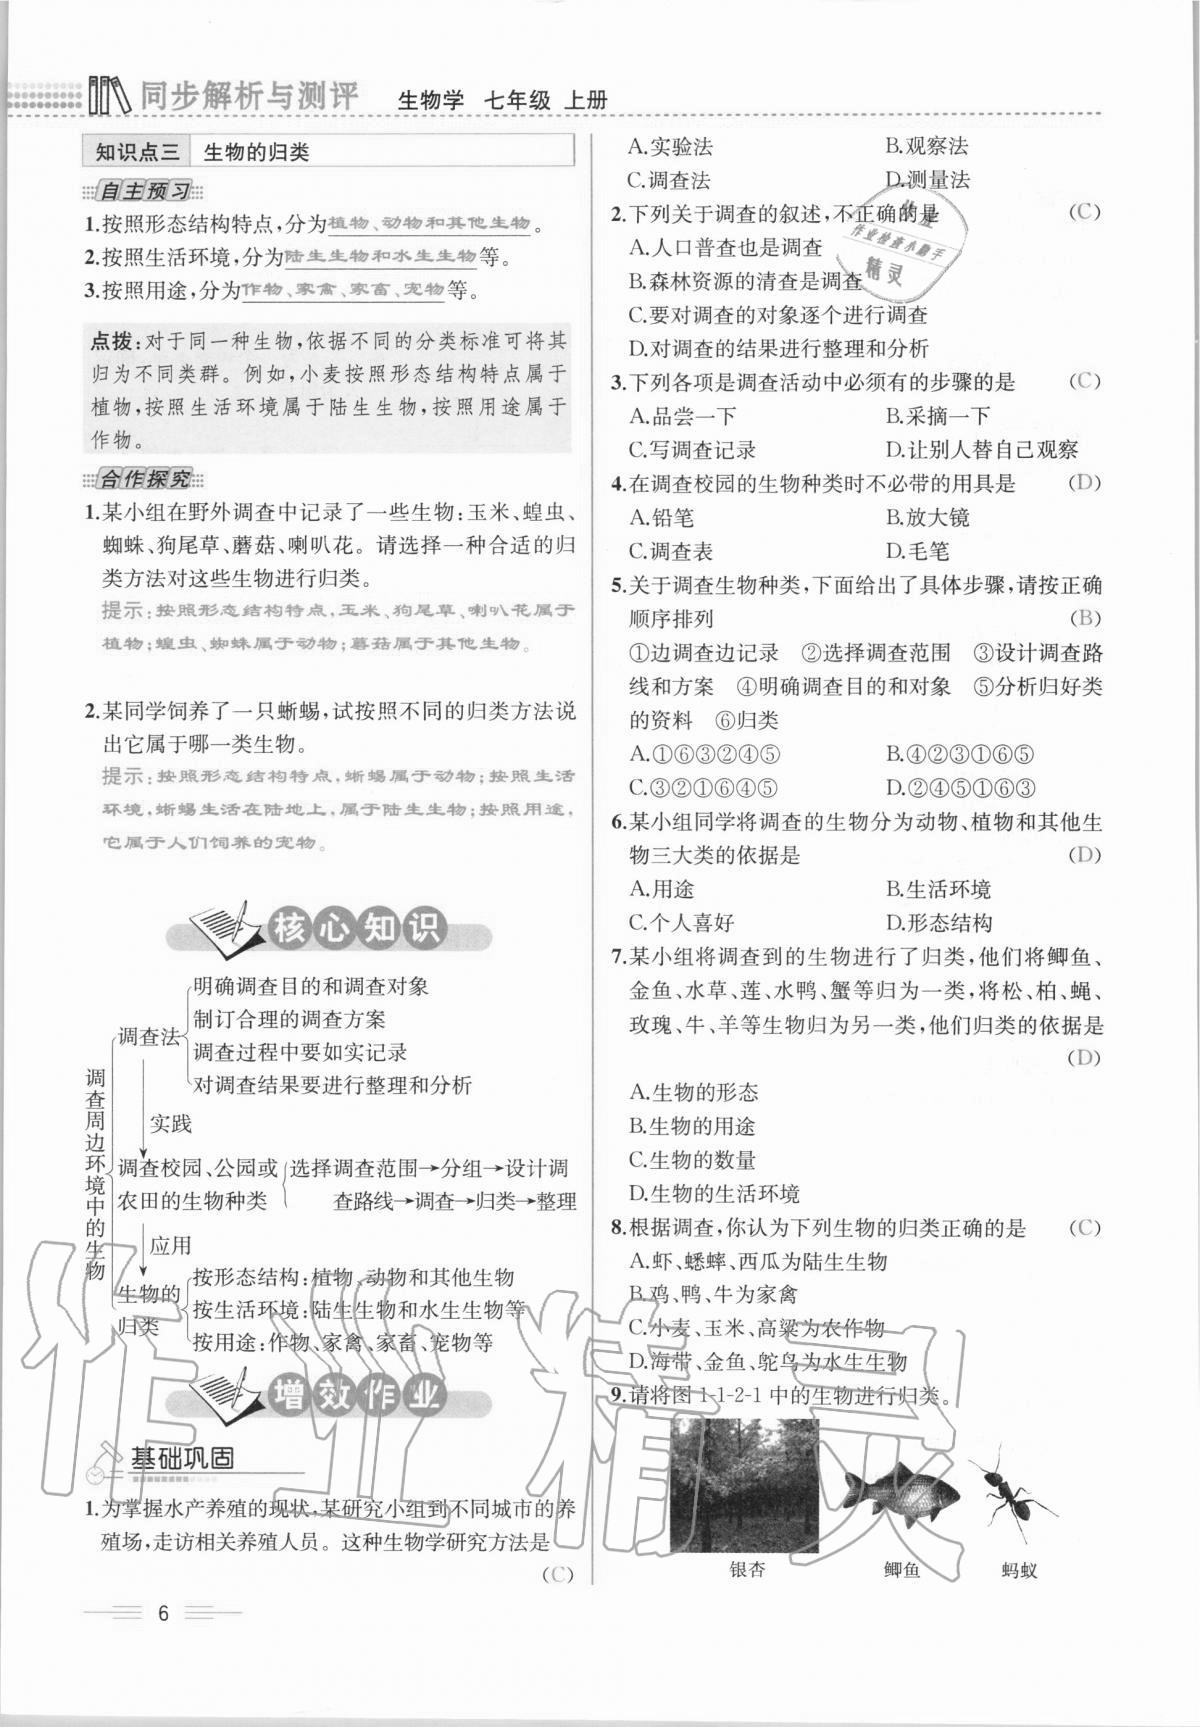 同步解析与测评 生物学 七年级 上册
知识点三 生物的归类
自主预习
1.按照形态结构特点,分为植物、动物和其他生物。
2.按照生活环境,分为陆生生物和水生生物等。
3.按照用途,分为作物、家禽、家畜、宠物等。
点拨:对于同一种生物,依据不同的分类标准可将其
归为不同类群。例如,小麦按照形态结构特点属于
植物,按照生活环境属于陆生生物,按照用途属于
作物。
合作探究
1.某小组在野外调查中记录了一些生物:玉米、蝗虫、
蜘蛛、狗尾草、蘑菇、喇叭花。请选择一种合适的归
类方法对这些生物进行归类。
提示:按照形态结构特点,玉米、狗尾草、喇叭花属于
植物;蝗虫、蜘蛛属于动物;蘑菇属于其他生物。
2.某同学饲养了一只蜥蜴,试按照不同的归类方法说
出它属于哪一类生物。
提示:按照形态结构特点,蜥蜴属于动物;按照生活
环境,蜥蜴生活在陆地上,属于陆生生物;按照用途,
它属于人们饲养的宠物。
核心知识
调查周边环境中的生物
调查法
明确调查目的和调查对象
制订合理的调查方案
调查过程中要如实记录
对调查结果要进行整理和分析
实践
调查校园、公园或
农田的生物种类
选择调查范围→分组→设计调
查路线→调查→归类→整理
应用
生物的
归类
按形态结构:植物、动物和其他生物
按生活环境:陆生生物和水生生物等
按用途:作物、家禽、家畜、宠物等
增效作业
基础巩固
1.为掌握水产养殖的现状,某研究小组到不同城市的养
殖场,走访相关养殖人员。这种生物学研究方法是
(C)
6
A.实验法 B.观察法
C.调查法 D.测量法
2.下列关于调查的叙述,不正确的是 (C)
A.人口普查也是调查
B.森林资源的清查是调查
C.要对调查的对象逐个进行调查
D.对调查的结果进行整理和分析
3.下列各项是调查活动中必须有的步骤的是 (C)
A.品尝一下 B.采摘一下
C.写调查记录 D.让别人替自己观察
4.在调查校园的生物种类时不必带的用具是 (D)
A.铅笔 B.放大镜
C.调查表 D.毛笔
5.关于调查生物种类,下面给出了具体步骤,请按正确
顺序排列 (B)
①边调查边记录 ②选择调查范围 ③设计调查路
线和方案 ④明确调查目的和对象 ⑤分析归好类
的资料 ⑥归类
A.①⑥③②④⑤ B.④②③①⑥⑤
C.③②①⑥④⑤ D.②④⑤①⑥③
6.某小组同学将调查的生物分为动物、植物和其他生
物三大类的依据是 (D)
A.用途 B.生活环境
C.个人喜好 D.形态结构
7.某小组将调查到的生物进行了归类,他们将鲫鱼、
金鱼、水草、莲、水鸭、蟹等归为一类,将松、柏、蝇、
玫瑰、牛、羊等生物归为另一类,他们归类的依据是
(D)
A.生物的形态
B.生物的用途
C.生物的数量
D.生物的生活环境
8.根据调查,你认为下列生物的归类正确的是 (C)
A.虾、蟋蟀、西瓜为陆生生物
B.鸡、鸭、牛为家禽
C.小麦、玉米、高粱为农作物
D.海带、金鱼、鸵鸟为水生生物
9.请将图1-1-2-1中的生物进行归类。
银杏 鲫鱼 蚂蚁
作业
作业检查小助手
精灵
作业精灵